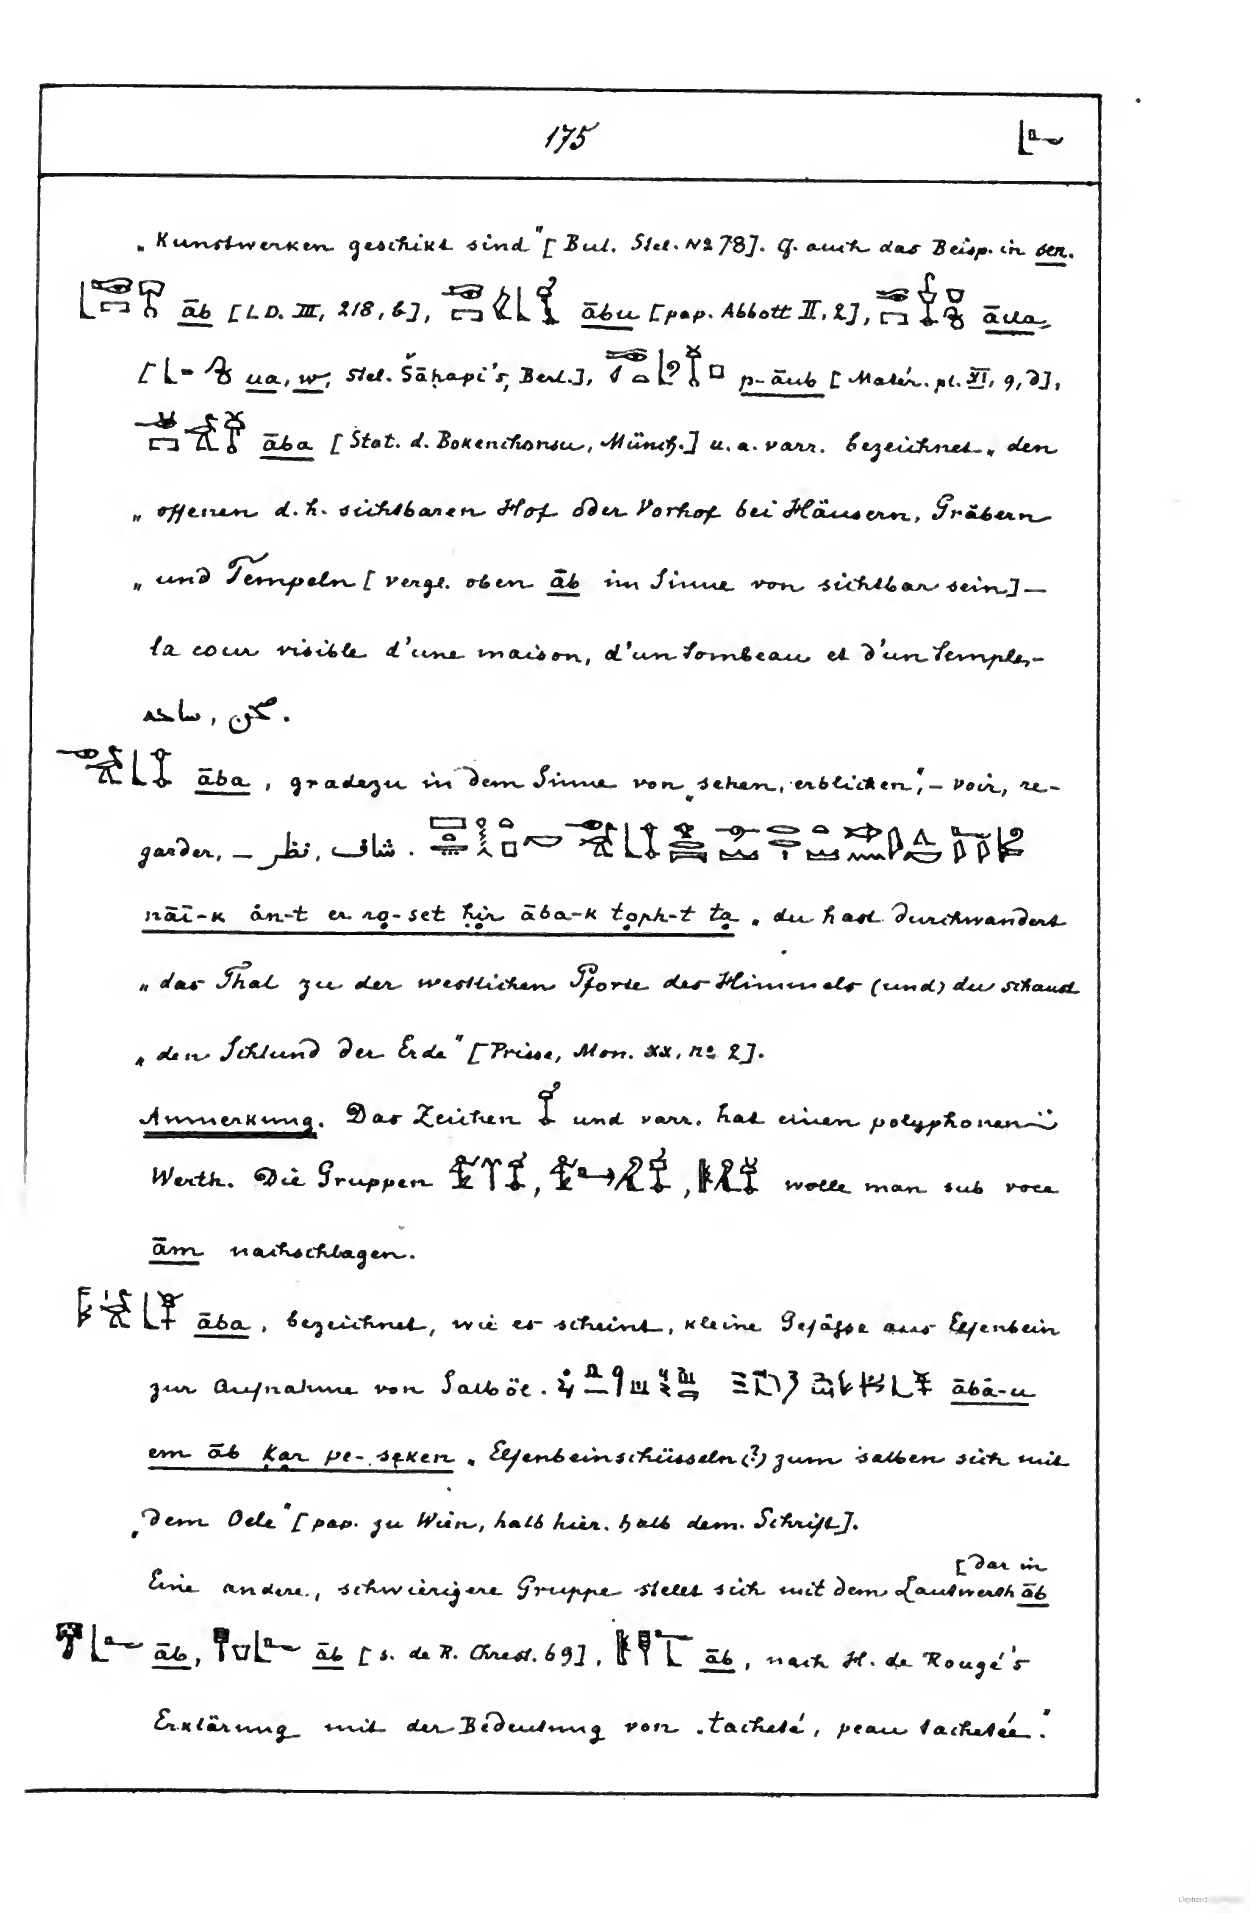 175
„Kunstwerken geschikt sind" [Bul. Stel. No 78]. cf. auch das Beisp. in ser.
āb [L.D. III, 218, b], ābu [pap. Abbott II, 2], āua,
[ua, w, Stel. Šāḥapi's, Berl.], p-āub [Matér. pl. XI, 9, d],
āba [Stat. d. Bokenchonsu, Münch.] u. a. varr. bezeichnet „den
„offenen d. h. sichtbaren Hof oder Vorhof bei Häusern, Gräbern
„und Tempeln [vergl. oben āb im Sinne von sichtbar sein] —
la cour visible d'une maison, d'un tombeau et d'un temple, —
صحن, ساحه.
āba, gradezu in dem Sinne von „sehen, erblicken", — voir, re-
garder, — شاف, نظر.
nāī-k ȧn-t er ro-set ḥir āba-k ṭopḥ-t ta „du hast durchwandert
„das Thal zu der westlichen Pforte des Himmels (und) du schaust
„den Schlund der Erde" [Prisse, Mon. XX, no 2].
Anmerkung. Das Zeichen und varr. hat einen polyphonen
Werth. Die Gruppen , , wolle man sub voce
ām nachschlagen.
āba, bezeichnet, wie es scheint, kleine Gefässe aus Elfenbein
zur Aufnahme von Salböl. ābȧ-u
em āb ḳar pe-seken „Elfenbeinschüsseln (?) zum salben sich mit
„dem Oele" [pap. zu Wien, halb hier. halb dem. Schrift].
Eine andere, schwierigere Gruppe stellt sich mit dem Lautwerth āb [dar in
āb, āb [s. de R. Chrest. 69], āb, nach H. de Rougé's
Erklärung mit der Bedeutung von „tacheté, peau tachetée".
Digitized